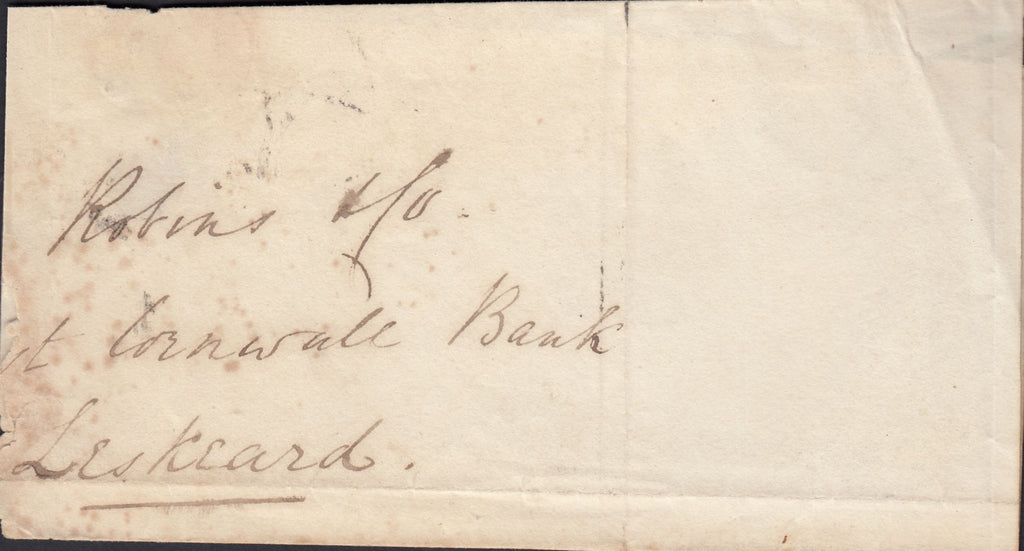 Robins & Co.
st Cornwall Bank
Leskeard.